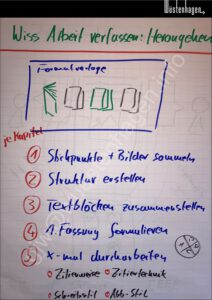 Wüstenhagen
Wiss Arbeit verfassen: Herangehen
Formatvorlage
je Kapitel
1 Stichpunkte + Bilder sammeln
2 Struktur erstellen
3 Textblöcken zusammenstellen
4 1. Fassung formulieren
5 x-mal durcharbeiten
Zitierweise Zitiertechnik
Schreibstil Abb-Stil